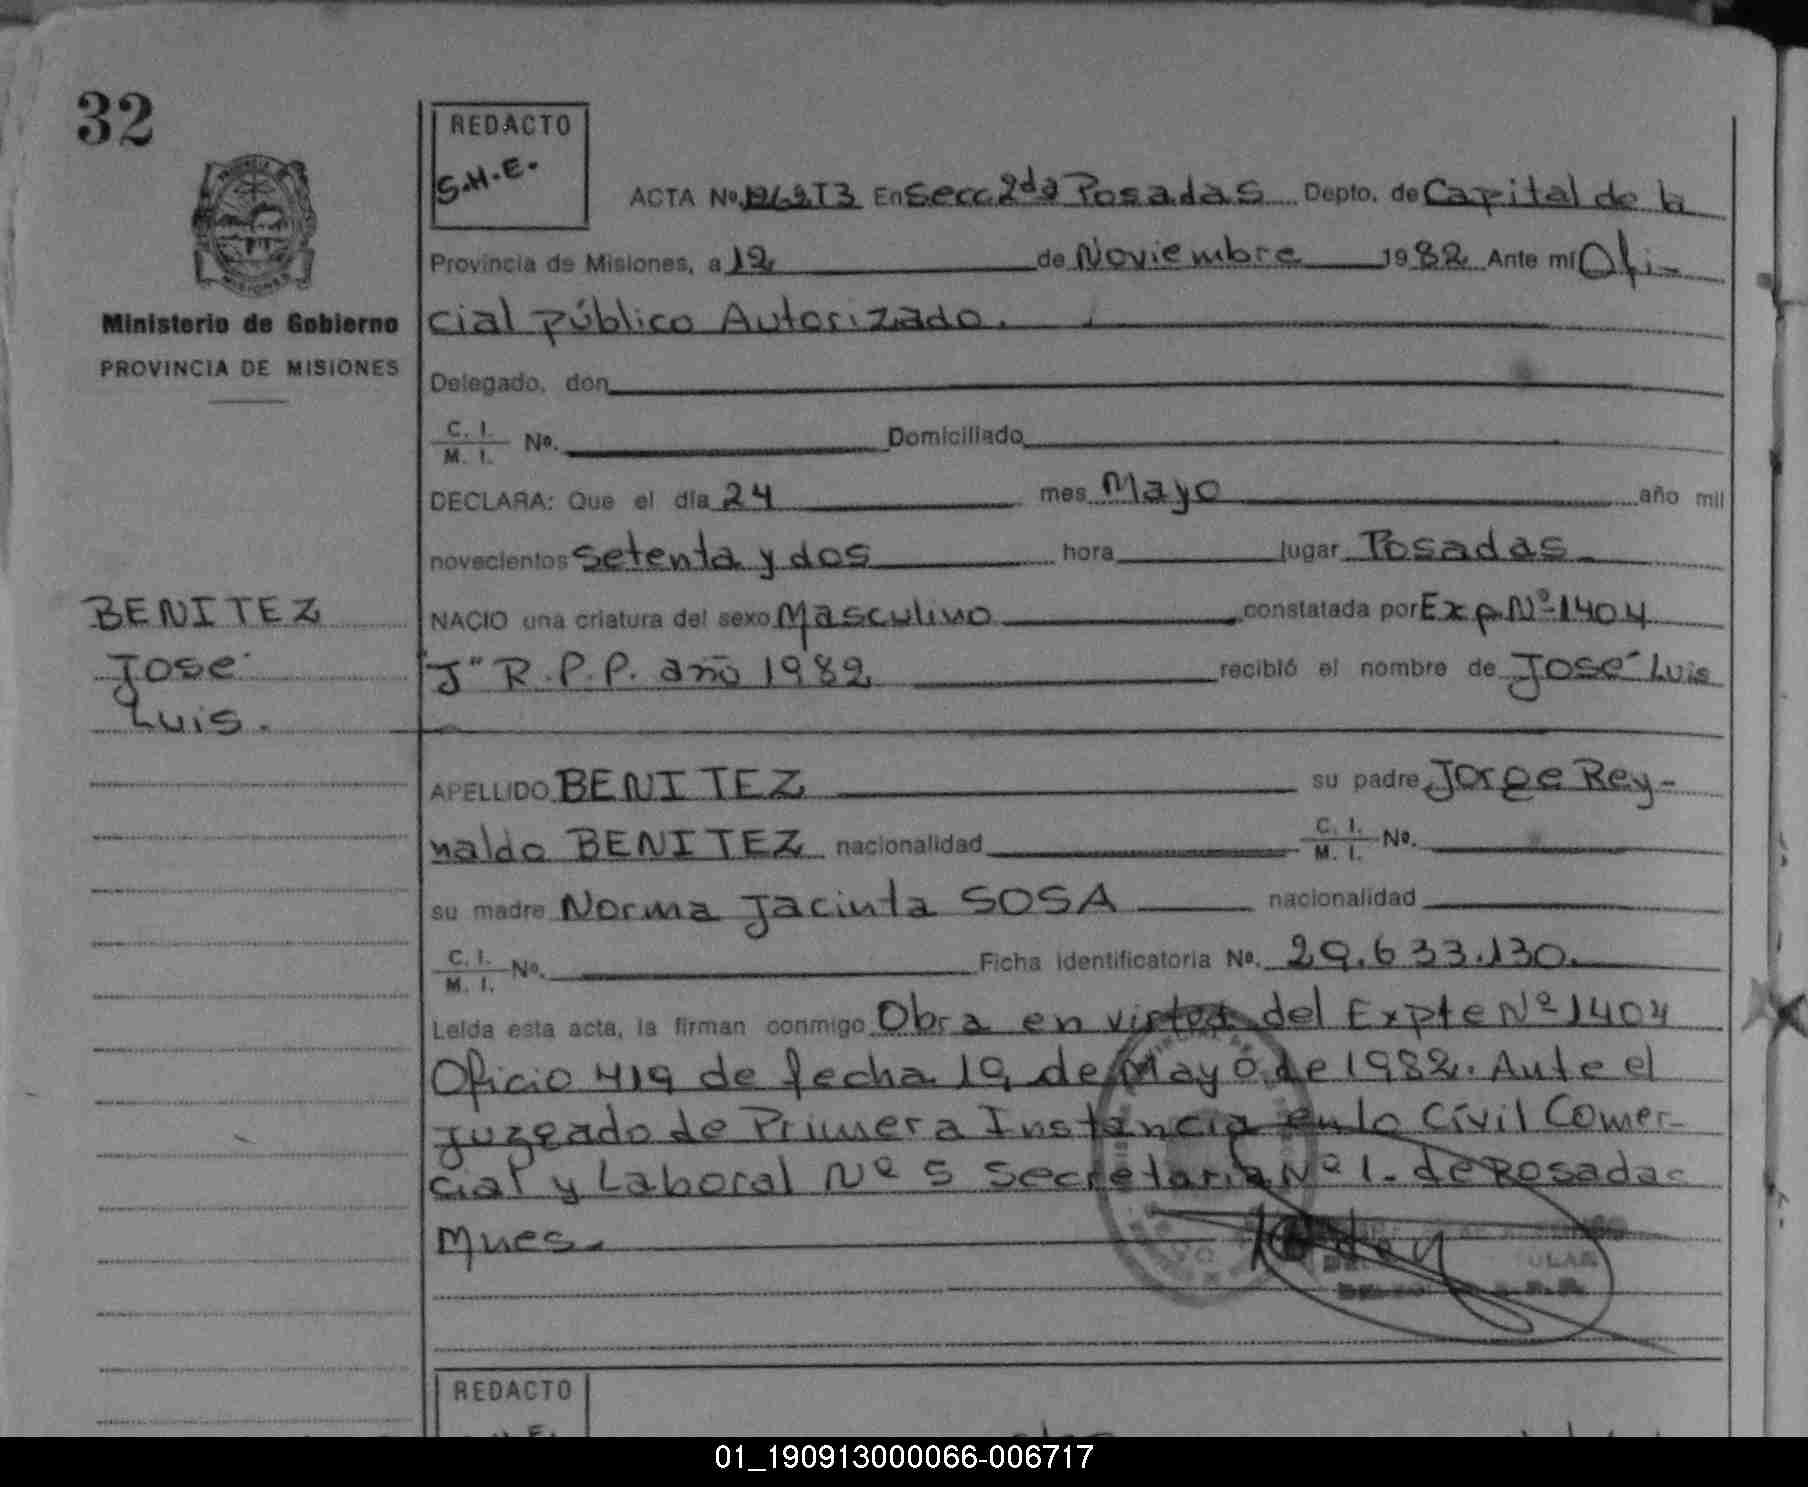 32
REDACTO
S.H.E.
ACTA No. 1263T3 En Secc. 2da Posadas Depto. de Capital de la
Provincia de Misiones, a 12 de Noviembre 1982 Ante mí Ofi-
Ministerio de Gobierno
cial público Autorizado.
PROVINCIA DE MISIONES
Delegado, don
C. I.
M. I. No. Domiciliado
DECLARA: Que el día 24 mes Mayo año mil
novecientos setenta y dos hora lugar Posadas
BENITEZ
NACIO una criatura del sexo Masculino constatada por Exp Nº 1404
José
"J" R.P.P. año 1982 recibió el nombre de José Luis
Luis.
APELLIDO BENITEZ su padre Jorge Rey-
naldo BENITEZ nacionalidad C. I. M. I. No.
su madre Norma Jacinta SOSA nacionalidad
C. I. M. I. No. Ficha identificatoria No. 29.633.130.
Leída esta acta, la firman conmigo Obra en virtud del Expte Nº 1404
Oficio 419 de fecha 19 de Mayo de 1982. Ante el
Juzgado de Primera Instancia en lo Civil Comer-
cial y Laboral Nº 5 Secretaria Nº 1. de Posadas
Mnes.
REDACTO
01_190913000066-006717